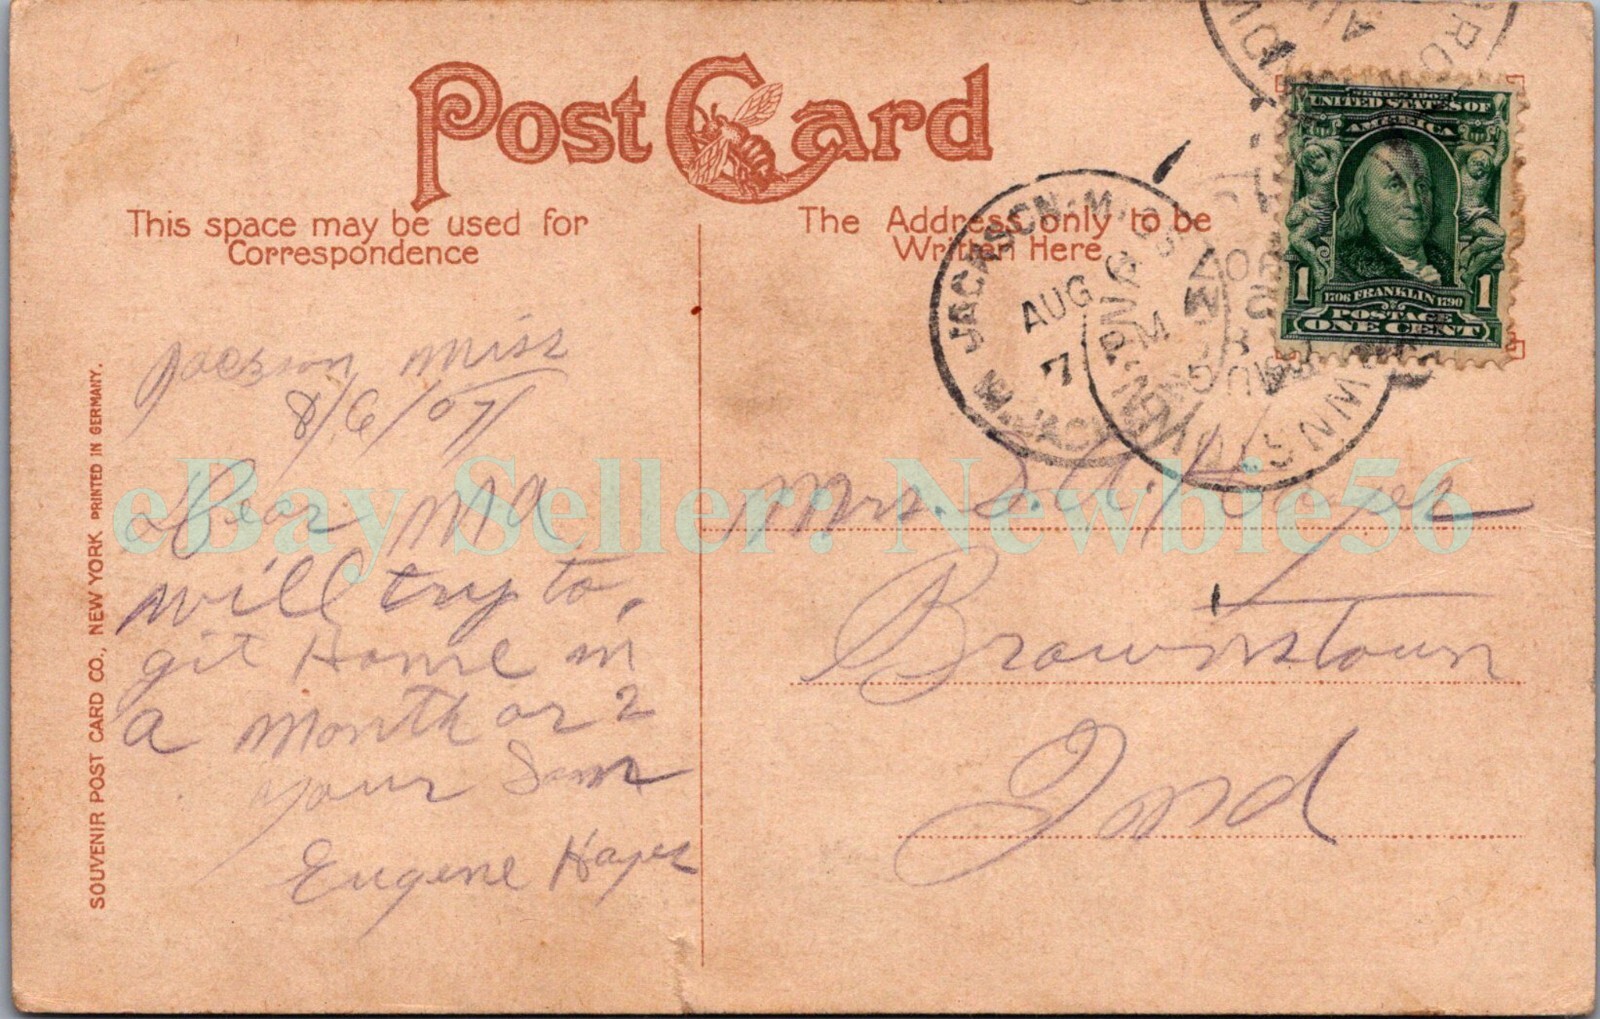 Post Card
This space may be used for
Correspondence
The Address only to be
Written Here
SERIES 1902
UNITED STATES OF
AMERICA
1 1
1706 FRANKLIN 1790
POSTAGE
ONE CENT
JACKSON. M
AUG 6
7 PM
AUG
Jackson Miss
8/6/07
Dear Ma
will try to,
git Home in
a Month or 2
your Son
Eugene Hayes
Mrs. S. A. Hayes
Brownstown
Ind
SOUVENIR POST CARD CO., NEW YORK PRINTED IN GERMANY.
eBay Seller: Newbie56